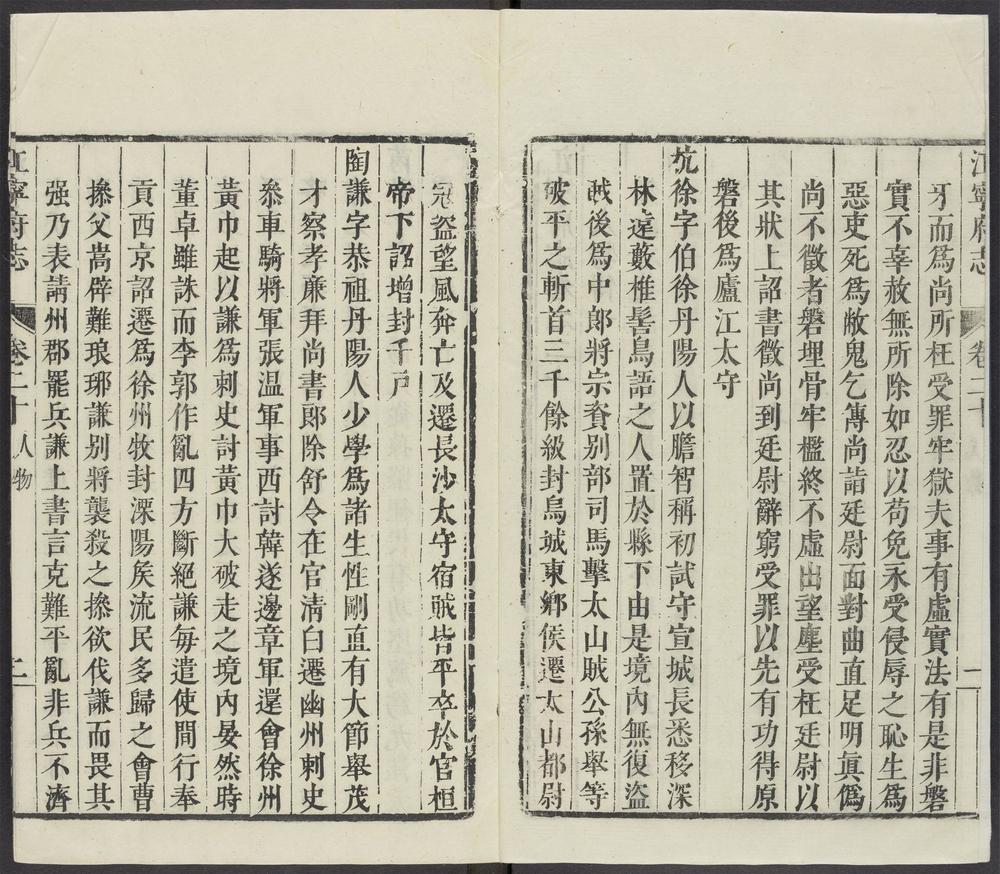 江寧府志 卷二十 一
牙而爲尚所枉受罪牢獄夫事有虛實法有是非磐
實不辜赦無所除如忍以苟免永受侵辱之恥生爲
惡吏死爲敝鬼乞傳尚詣廷尉面對曲直足明眞僞
尚不徵者磐埋骨牢檻終不虛出望塵受枉廷尉以
其狀上詔書徵尚到廷尉辭窮受罪以先有功得原
磐後爲廬江太守
抗徐字伯徐丹陽人以膽智稱初試守宣城長悉移深
林遠藪椎髻鳥語之人置於縣下由是境內無復盜
賊後爲中郎將宗資別部司馬擊太山賊公孫舉等
破平之斬首三千餘級封烏城東鄉侯遷太山都尉
寇盜望風奔亡及遷長沙太守宿賊皆平卒於官桓
帝下詔增封千戸
陶謙字恭祖丹陽人少學爲諸生性剛直有大節舉茂
才察孝廉拜尚書郎除舒令在官清白遷幽州刺史
叅車騎將軍張温軍事西討韓遂邊章軍還會徐州
黃巾起以謙爲刺史討黃巾大破走之境內晏然時
董卓雖誅而李郭作亂四方斷絕謙每遣使間行奉
貢西京詔遷爲徐州牧封溧陽矦流民多歸之會曹
操父嵩辟難琅琊謙别將襲殺之操欲伐謙而畏其
强乃表請州郡罷兵謙上書言克難平亂非兵不濟
江寧府志 卷二十 人物 二